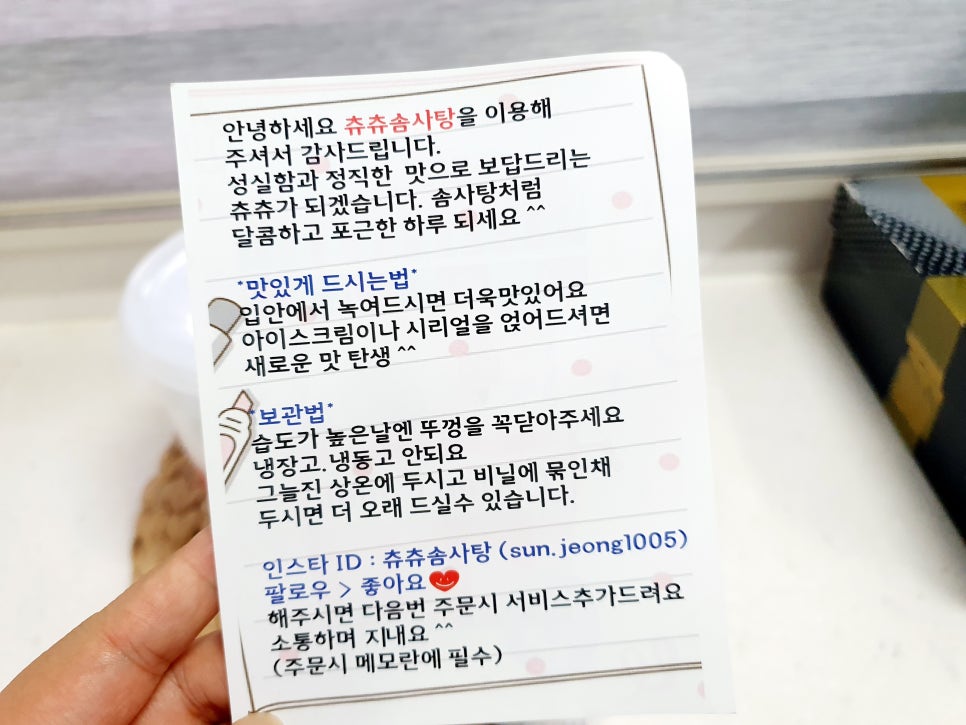 안녕하세요 츄츄솜사탕을 이용해
주셔서 감사드립니다.
성실함과 정직한 맛으로 보답드리는
츄츄가 되겠습니다. 솜사탕처럼
달콤하고 포근한 하루 되세요 ^^
*맛있게 드시는법*
입안에서 녹여드시면 더욱맛있어요
아이스크림이나 시리얼을 얹어드셔면
새로운 맛 탄생 ^^
*보관법*
습도가 높은날엔 뚜껑을 꼭닫아주세요
냉장고.냉동고 안되요
그늘진 상온에 두시고 비닐에 묶인채
두시면 더 오래 드실수 있습니다.
인스타 ID : 츄츄솜사탕 (sun.jeong1005)
팔로우 > 좋아요
해주시면 다음번 주문시 서비스추가드려요
소통하며 지내요 ^^
(주문시 메모란에 필수)